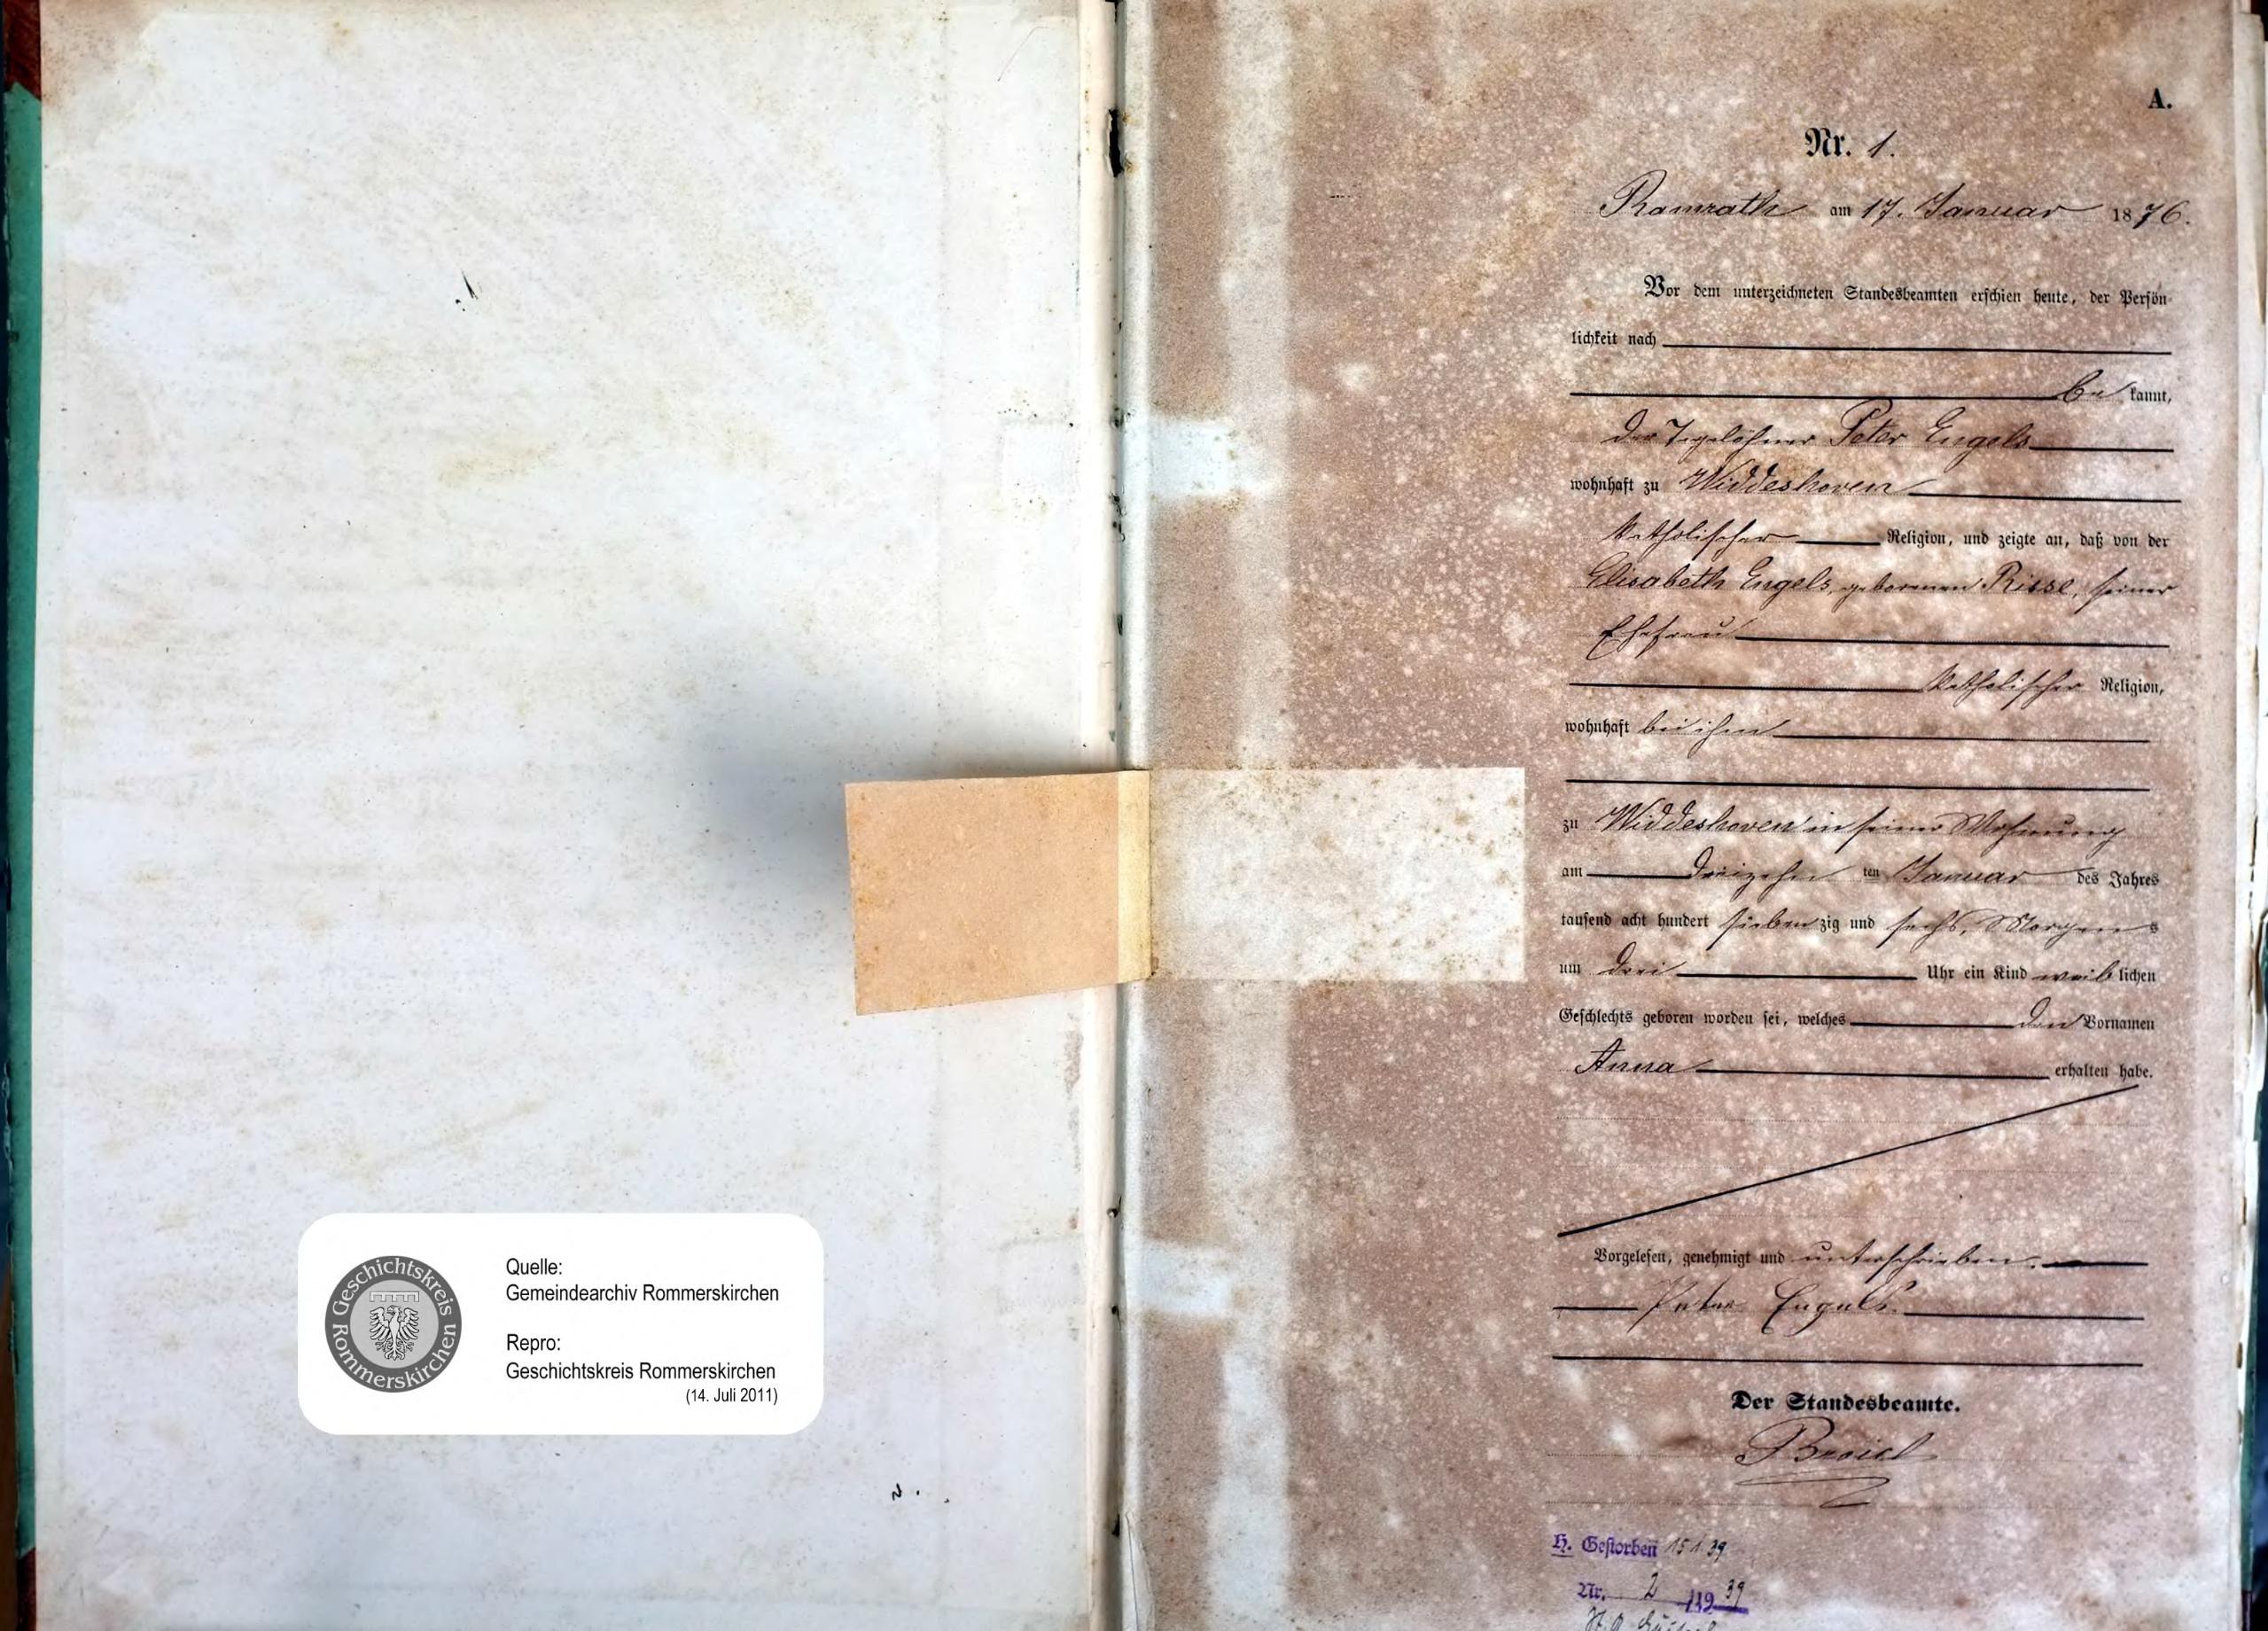 Geschichtskreis Rommerskirchen
Quelle:
Gemeindearchiv Rommerskirchen
Repro:
Geschichtskreis Rommerskirchen
(14. Juli 2011)
A.
Nr. 1.
Ramrath am 17. Januar 1876.
Vor dem unterzeichneten Standesbeamten erschien heute, der Persön-
lichkeit nach
be kannt,
der Tagelöhner Peter Engels
wohnhaft zu Widdeshoven
katholischer Religion, und zeigte an, daß von der
Elisabeth Engels, geborenen Risse, seiner
Ehefrau
katholischer Religion,
wohnhaft bei ihm
zu Widdeshoven in seiner Wohnung
am dreizehn ten Januar des Jahres
tausend acht hundert sieben zig und sechs, Morgen s
um drei Uhr ein Kind weib lichen
Geschlechts geboren worden sei, welches den Vornamen
Anna erhalten habe.
Vorgelesen, genehmigt und unterschrieben.
Peter Engels.
Der Standesbeamte.
Broich
H. Gestorben 15.1.39
Nr. 2 /1939